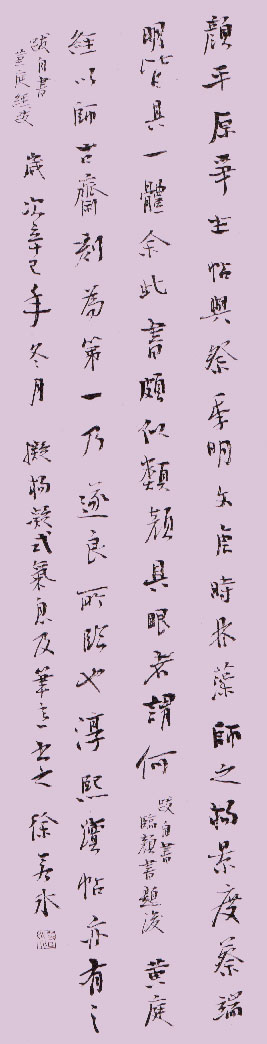 顏平原爭坐帖與祭季明文唐時林藻師之楊景度蔡端
明皆具一體余此書頗似類顏具眼者謂何 跋自書臨顏書題後 黃庭
經以師古齋刻為第一乃遂良所臨也淳熙續帖亦有之
跋自書黃庭經後 歲次辛巳年冬月 擬楊凝式氣息及筆意書之 徐善水